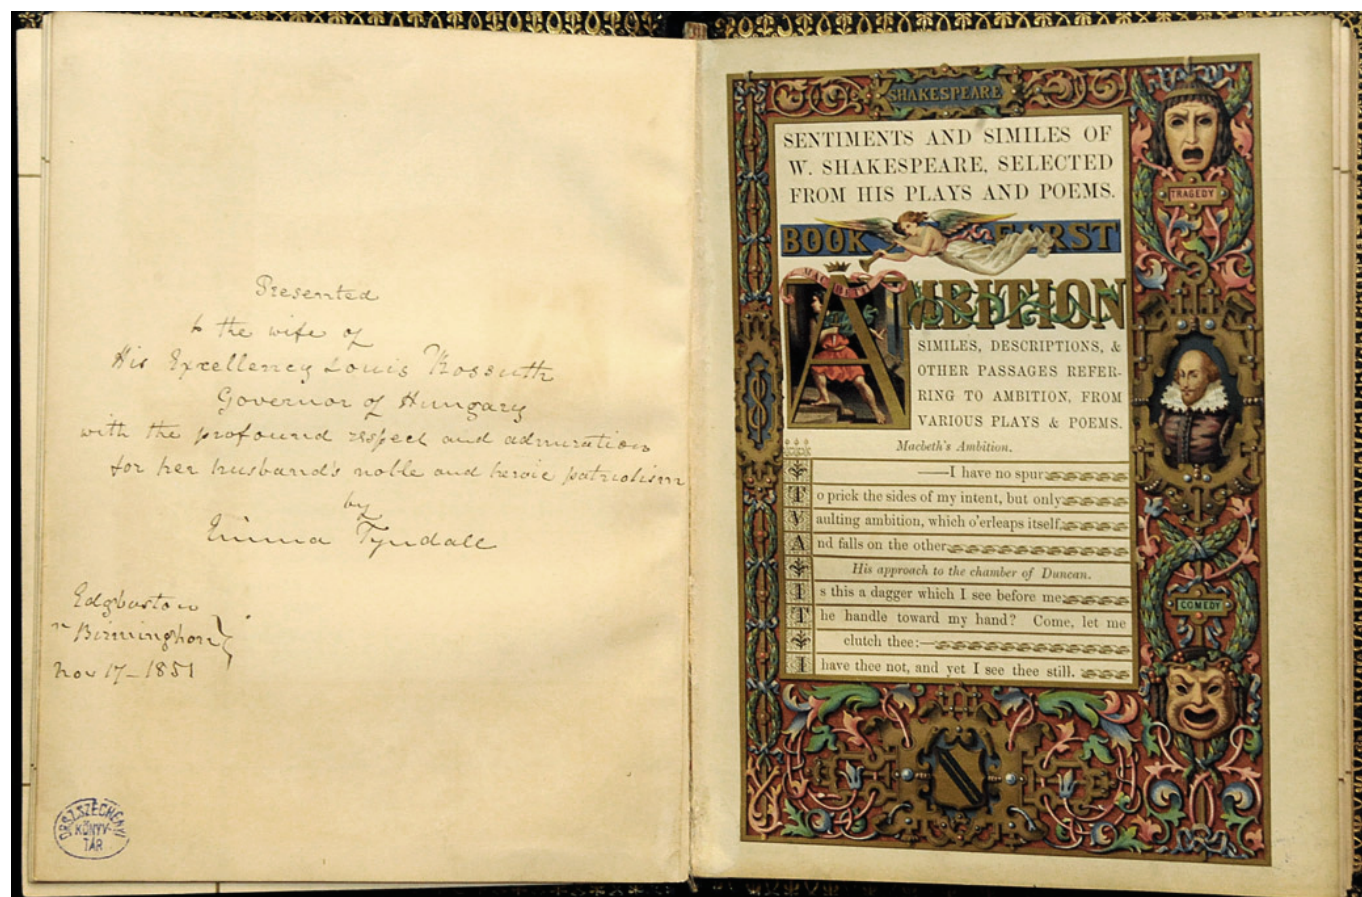 Presented
to the wife of
His Excellency Louis Kossuth
Governor of Hungary
with the profound respect and admiration
for her husband's noble and heroic patriotism
by
Emma Tyndall
Edgbaston
nr Birmingham
Nov 17 - 1851
ORSZ. SZÉCHÉNYI
KÖNYV-
TÁR
SHAKESPEARE
SENTIMENTS AND SIMILES OF
W. SHAKESPEARE, SELECTED
FROM HIS PLAYS AND POEMS.
BOOK FIRST
MACBETH
AMBITION
SIMILES, DESCRIPTIONS, &
OTHER PASSAGES REFER-
RING TO AMBITION, FROM
VARIOUS PLAYS & POEMS.
Macbeth's Ambition.
——I have no spur
To prick the sides of my intent, but only
Vaulting ambition, which o'erleaps itself,
And falls on the other
His approach to the chamber of Duncan.
Is this a dagger which I see before me,
The handle toward my hand? Come, let me
clutch thee:—
I have thee not, and yet I see thee still.
TRAGEDY
COMEDY